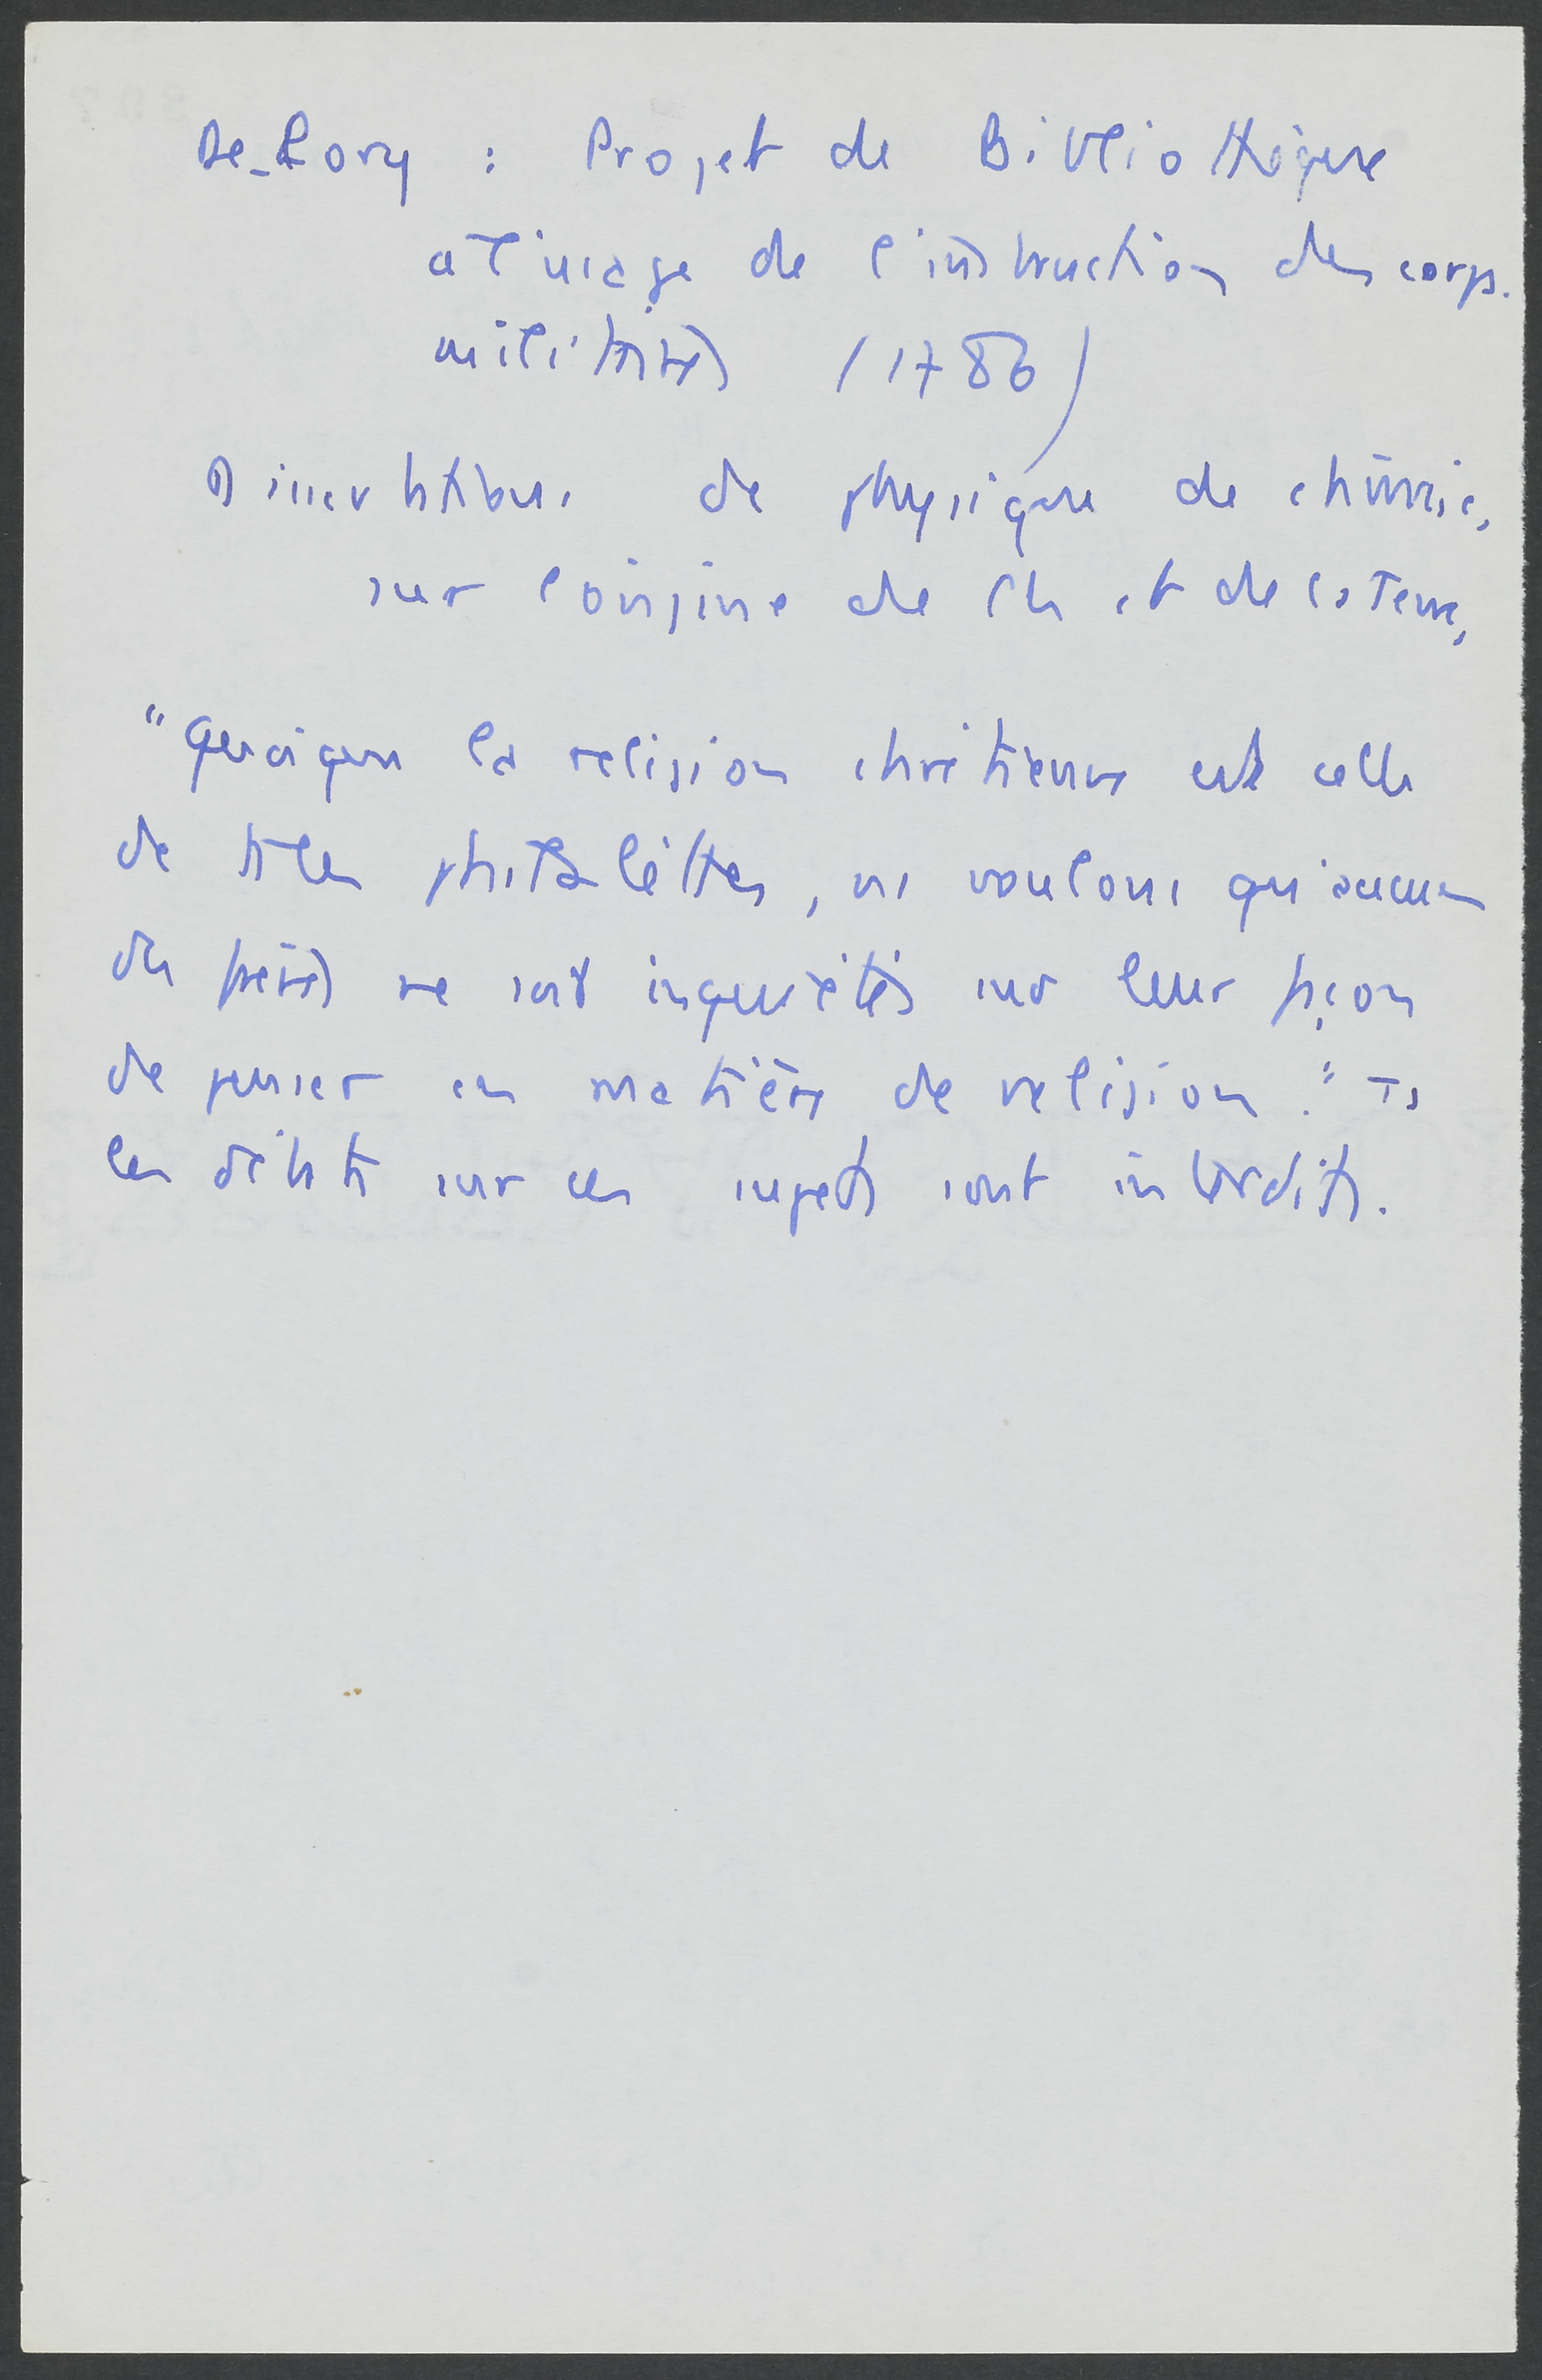 De-Rozy : Projet de Bibliothèque
à l'usage de l'instruction des corps.
militaires (1786)
Dissertations de physique de chimie,
sur l'origine de l'h et de la Terre,
"Quoique la religion chrétienne est celle
de tles philalèthes, ns voulons qu'aucun
des frères ne soit inquiétés sur leur façon
de penser en matière de religion." Ts
les débats sur ces sujets sont interdits.